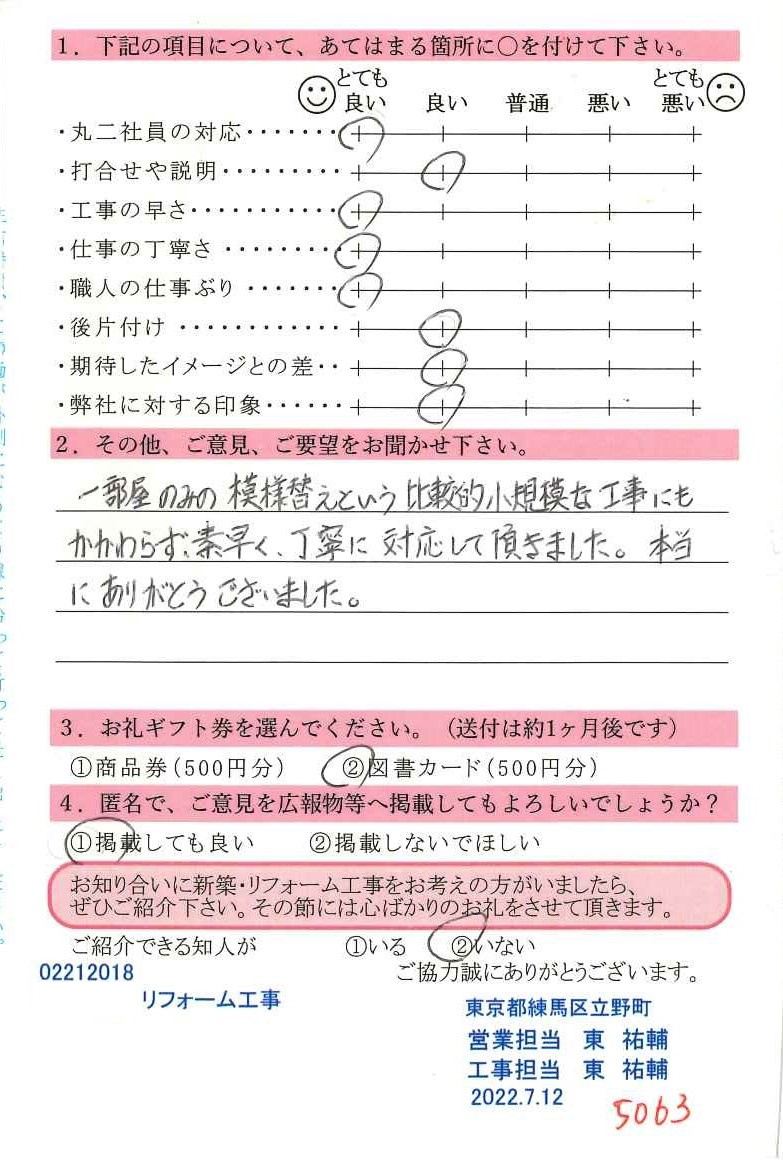 1．下記の項目について、あてはまる箇所に〇を付けて下さい。
とても良い　良い　普通　悪い　とても悪い
・丸二社員の対応・・・・・・・
・打合せや説明・・・・・・・・・
・工事の早さ・・・・・・・・・・・
・仕事の丁寧さ・・・・・・・・・
・職人の仕事ぶり・・・・・・・
・後片付け・・・・・・・・・・・・
・期待したイメージとの差・・
・弊社に対する印象・・・・・・
2．その他、ご意見、ご要望をお聞かせ下さい。
一部屋のみの模様替えという比較的小規模な工事にも
かかわらず、素早く、丁寧に対応して頂きました。本当
にありがとうございました。
3．お礼ギフト券を選んでください。（送付は約1ヶ月後です）
①商品券（500円分）　②図書カード（500円分）
4．匿名で、ご意見を広報物等へ掲載してもよろしいでしょうか？
①掲載しても良い　②掲載しないでほしい
お知り合いに新築・リフォーム工事をお考えの方がいましたら、
ぜひご紹介下さい。その節には心ばかりのお礼をさせて頂きます。
ご紹介できる知人が　①いる　②いない
02212018
ご協力誠にありがとうございます。
リフォーム工事
東京都練馬区立野町
営業担当　東　祐輔
工事担当　東　祐輔
2022.7.12
5063